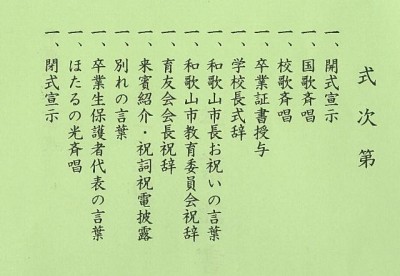 式次第
一、開式宣示
一、国歌斉唱
一、校歌斉唱
一、卒業証書授与
一、学校長式辞
一、和歌山市長お祝いの言葉
一、和歌山市教育委員会祝辞
一、育友会会長祝辞
一、来賓紹介・祝詞祝電披露
一、別れの言葉
一、卒業生保護者代表の言葉
一、ほたるの光斉唱
一、閉式宣示